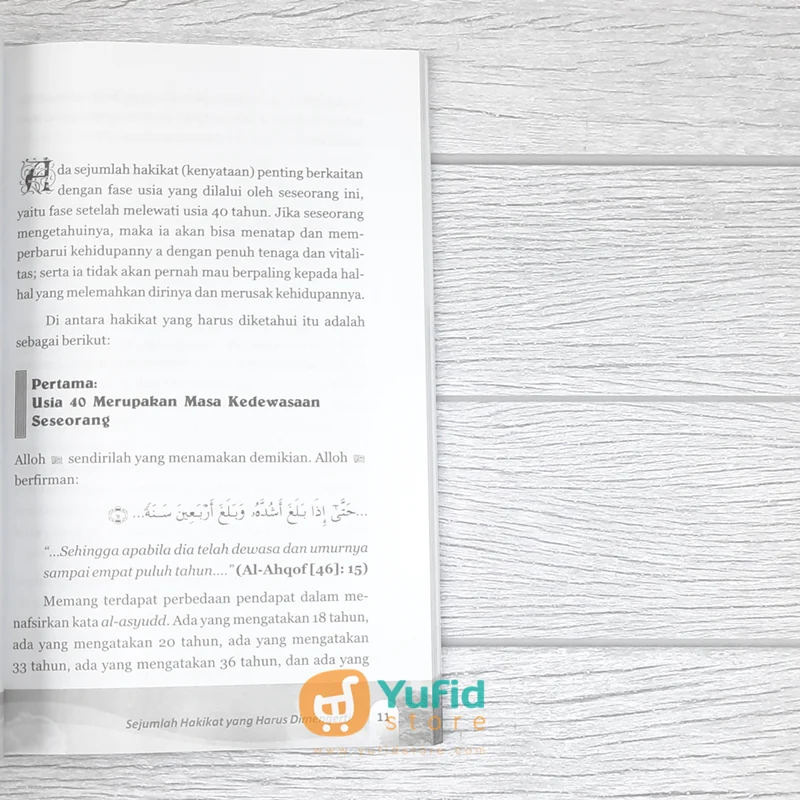 Ada sejumlah hakikat (kenyataan) penting berkaitan
dengan fase usia yang dilalui oleh seseorang ini,
yaitu fase setelah melewati usia 40 tahun. Jika seseorang
mengetahuinya, maka ia akan bisa menatap dan mem-
perbarui kehidupanny a dengan penuh tenaga dan vitali-
tas; serta ia tidak akan pernah mau berpaling kepada hal-
hal yang melemahkan dirinya dan merusak kehidupannya.
Di antara hakikat yang harus diketahui itu adalah
sebagai berikut:
Pertama:
Usia 40 Merupakan Masa Kedewasaan
Seseorang
Alloh ﷻ sendirilah yang menamakan demikian. Alloh ﷻ
berfirman:
...حَتَّىٰٓ إِذَا بَلَغَ أَشُدَّهُۥ وَبَلَغَ أَرْبَعِينَ سَنَةً...
"...Sehingga apabila dia telah dewasa dan umurnya
sampai empat puluh tahun...." (Al-Ahqof [46]: 15)
Memang terdapat perbedaan pendapat dalam me-
nafsirkan kata al-asyudd. Ada yang mengatakan 18 tahun,
ada yang mengatakan 20 tahun, ada yang mengatakan
33 tahun, ada yang mengatakan 36 tahun, dan ada yang
Sejumlah Hakikat yang Harus Dimengerti 11
Yufid
store
www.yufidstore.com